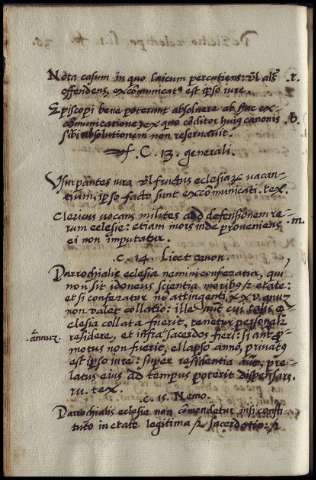 Nota casum in quo laicum percutiens: vl als
offendens, excommunicat9 est ipso iure.
.r.
Episcopi bene poterunt absoluere ab hac ex-
comunicatione ex quo coditor hui9 canonis
sibi absolutionem non reseruauit.
.s.
C. 13. generali.
Vsurpantes iura vl fructus ecclesiaru vacan-
tium, ipso facto sunt excommunicati. tex.
Clericus uocans milites ad defensionem re-
rum eclesie: etiam mors inde proueniens
ei non imputatur.
.m.
C. 14. Licet canon.
Parrochialis eclesia nemini conferatur, qui
non sit idoneus scientia moribus et etate:
et si conferatur no attingenti xxv. annuz
non valet collatio: ille aut cui talis e-
clesia collata fuerit, tenetur personalr
residere, et infra
annuz
sacerdos fieri: si ant
motus non fuerit, ellapso anno, priuat9
est ipso iure: super residentia aut, pre-
latus eius ad tempus poterit dispensare.
tex.
C. 15. Nemo.
Parrochialis eclesie non comendetur nisi consti-
tuto in etate legitima et sacerdotio: